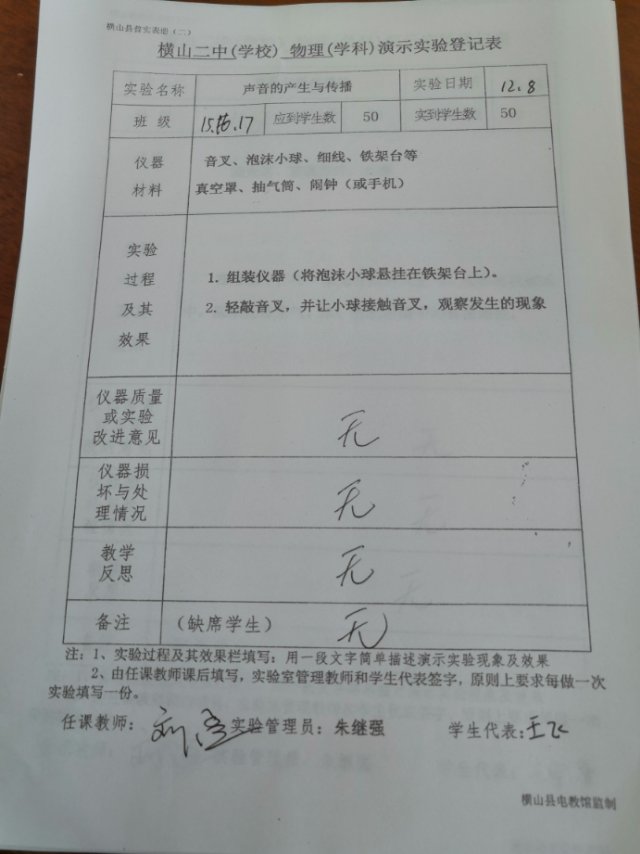 横山县普实表册（二）
横山二中(学校) 物理(学科)演示实验登记表
实验名称 声音的产生与传播 实验日期 12.8
班 级 15.16.17 应到学生数 50 实到学生数 50
仪器 音叉、泡沫小球、细线、铁架台等
材料 真空罩、抽气筒、闹钟（或手机）
实验
过程 1. 组装仪器（将泡沫小球悬挂在铁架台上）。
及其 2. 轻敲音叉，并让小球接触音叉，观察发生的现象
效果
仪器质量
或实验
改进意见 无
仪器损
坏与处
理情况 无
教学
反思 无
备注 （缺席学生） 无
注：1、实验过程及其效果栏填写：用一段文字简单描述演示实验现象及效果
2、由任课教师课后填写，实验室管理教师和学生代表签字，原则上要求每做一次
实验填写一份。
任课教师： 刘 实验管理员：朱继强 学生代表:王飞
横山县电教馆监制